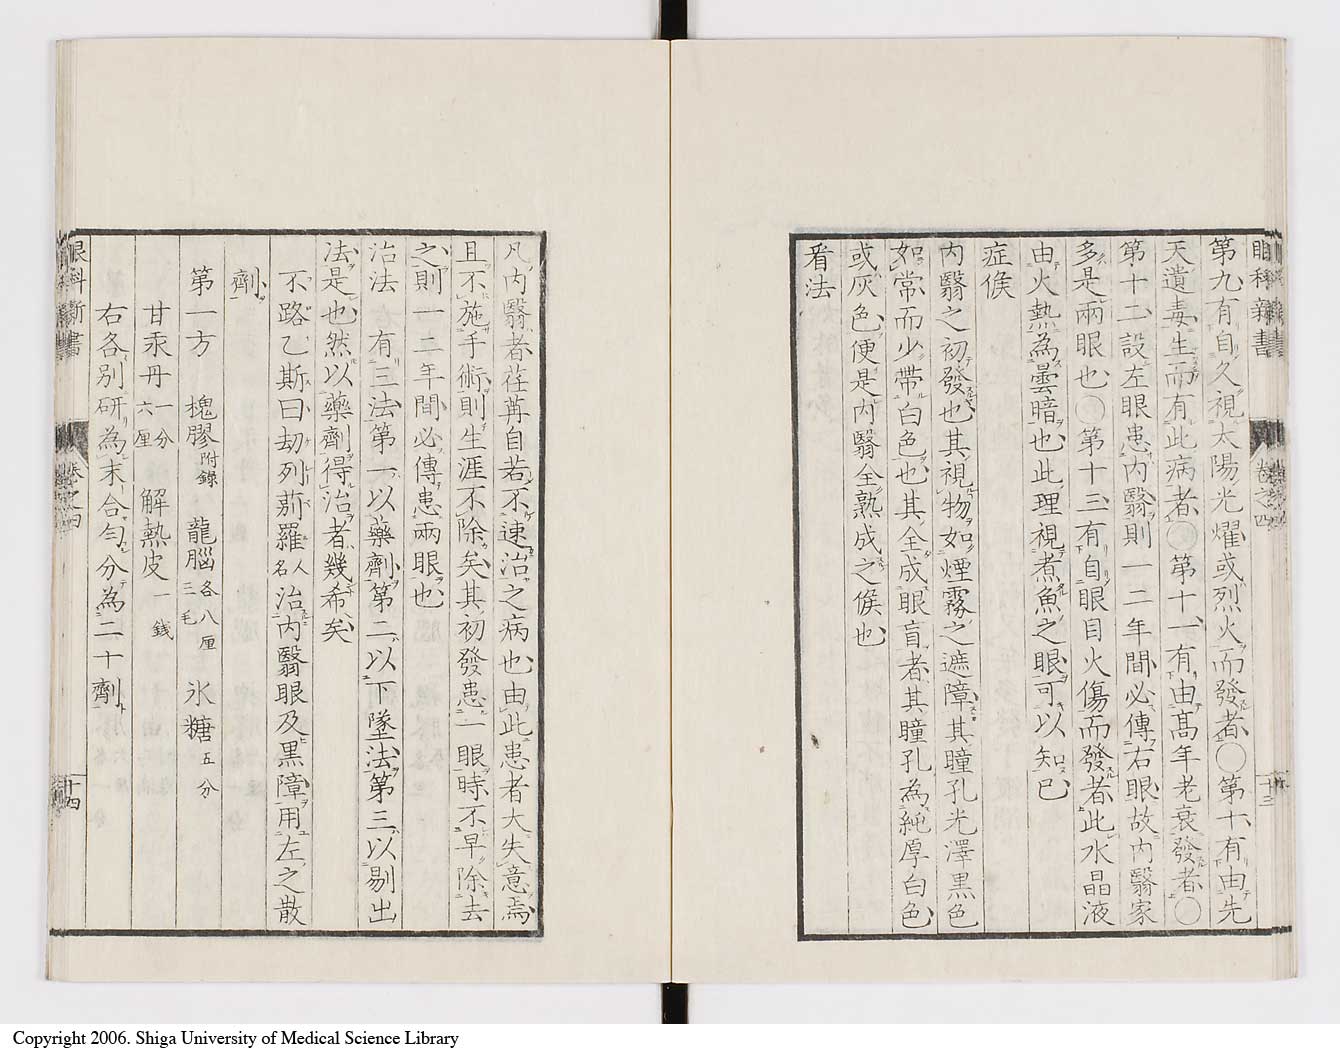 眼科新書
卷之四
十三
第九有自久視太陽光耀或烈火而發者〇第十有由先
天遺毒生而有此病者〇第十一有由髙年老衰發者〇
第十二設左眼患内翳則一二年間必傳右眼故内翳家
多是兩眼也〇第十三有自眼目火傷而發者此水晶液
由火熱為曇暗也此理視煮魚之眼可以知已
症候
内翳之初發也其視物如煙霧之遮障其瞳孔光澤黒色
如常而少帶白色也其全成眼盲者其瞳孔為純厚白色
或灰色便是内翳全熟成之候也
看法
凡内翳者荏苒自若不速治之病也由此患者大失意焉
且不施手術則生涯不除矣其初發患一眼時不早除去
之則一二年間必傳患兩眼也
治法 有三法第一以藥劑第二以下墜法第三以剔出
法是也然以藥劑得治者幾希矣
不路乙斯曰劫列爾羅人名治内翳眼及黒障用左之散
劑
第一方 槐膠附錄 龍腦各八厘三毛 氷糖五分
甘汞丹一分六厘 解熱皮一錢
右各別研為末合匀分為二十劑
眼科新書
卷之四
十四
Copyright 2006. Shiga University of Medical Science Library